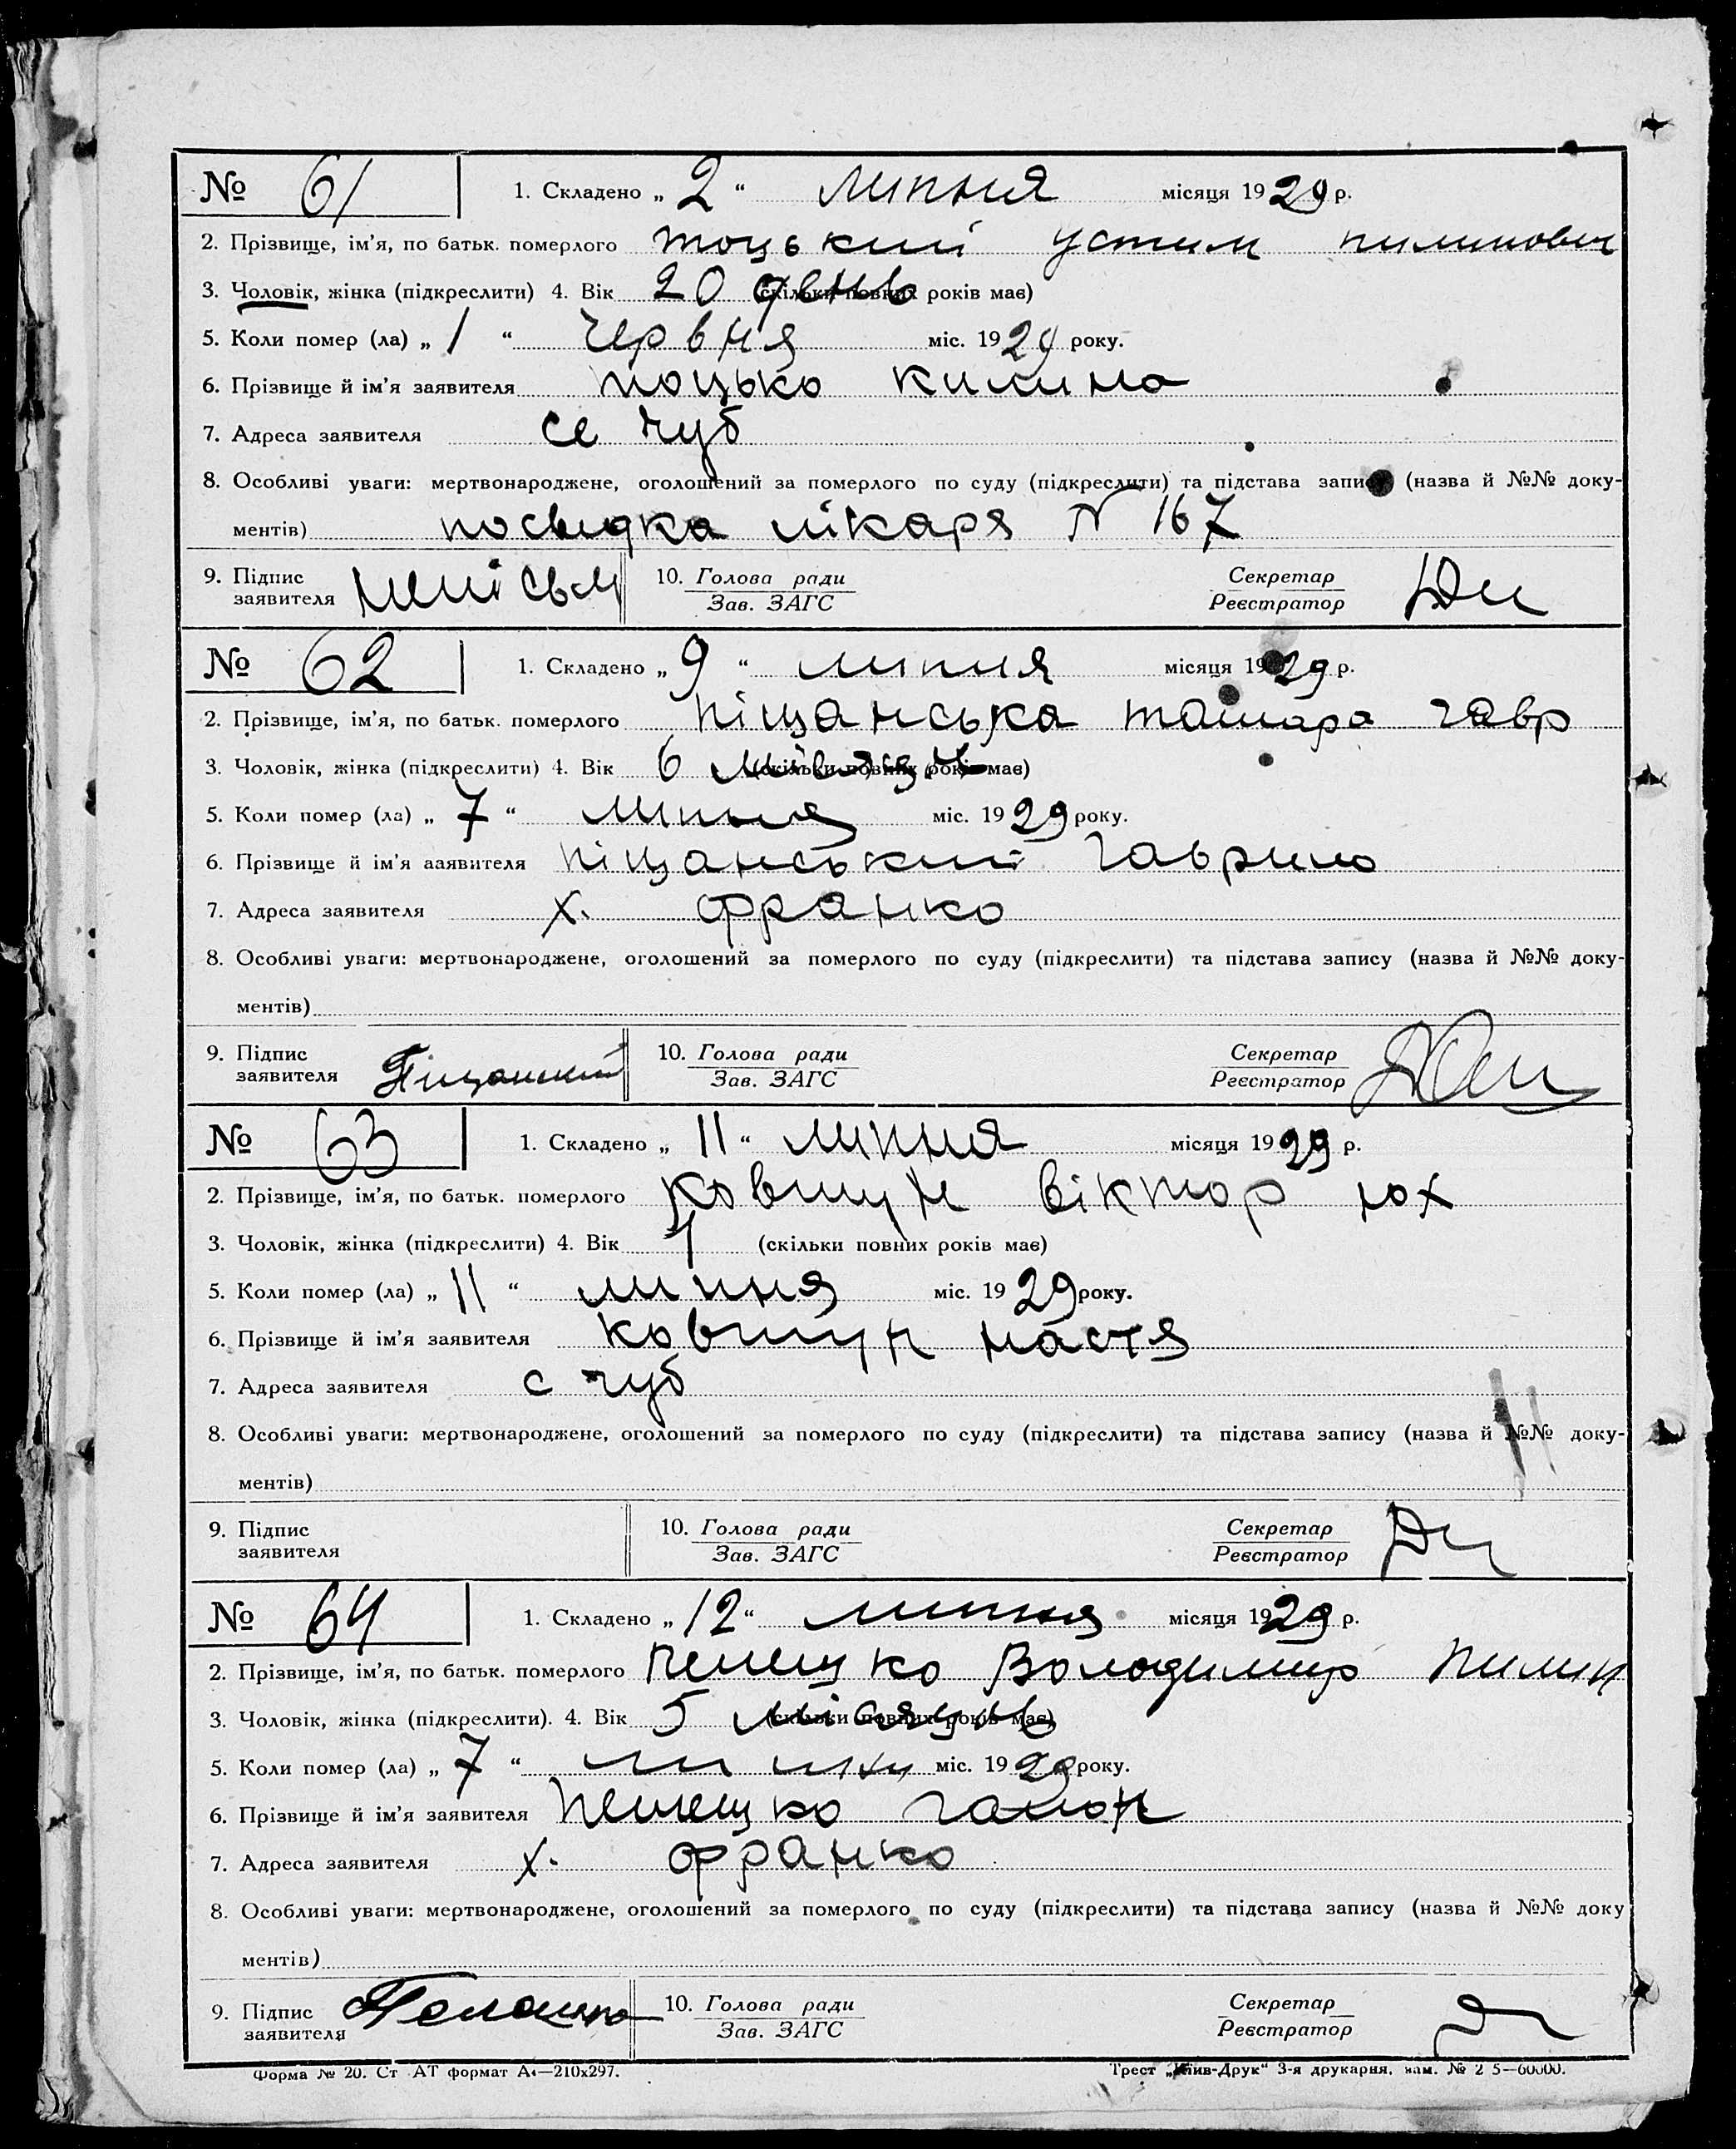 № 61 1. Складено „2“ липня місяця 1929 р.
2. Прізвище, ім’я, по батьк. померлого тоцький устим пилипович
3. Чоловік, жінка (підкреслити) 4. Вік 20 день (скільки повних років має)
5. Коли помер (ла) „1“ червня міс. 1929 року.
6. Прізвище й ім’я заявителя тоцько килина
7. Адреса заявителя се чуб
8. Особливі уваги: мертвонароджене, оголошений за померлого по суду (підкреслити) та підстава запису (назва й №№ доку-
ментів) посвидка лікаря N 167
9. Підпис 10. Голова ради Секретар
заявителя Зав. ЗАГС Реєстратор
№ 62 1. Складено „9“ липня місяця 1929 р.
2. Прізвище, ім’я, по батьк. померлого піщанська тамара гавр
3. Чоловік, жінка (підкреслити) 4. Вік 6 (скільки повних років має)
5. Коли помер (ла) „7“ липня міс. 1929 року.
6. Прізвище й ім’я заявителя піщанський гаврило
7. Адреса заявителя х. франко
8. Особливі уваги: мертвонароджене, оголошений за померлого по суду (підкреслити) та підстава запису (назва й №№ доку-
ментів)
9. Підпис 10. Голова ради Секретар
заявителя Зав. ЗАГС Реєстратор
№ 63 1. Складено „11“ липня місяця 1929 р.
2. Прізвище, ім’я, по батьк. померлого ковтун віктор юх
3. Чоловік, жінка (підкреслити) 4. Вік 1 (скільки повних років має)
5. Коли помер (ла) „11“ липня міс. 1929 року.
6. Прізвище й ім’я заявителя ковтун настя
7. Адреса заявителя с чуб
8. Особливі уваги: мертвонароджене, оголошений за померлого по суду (підкреслити) та підстава запису (назва й №№ доку-
ментів)
9. Підпис 10. Голова ради Секретар
заявителя Зав. ЗАГС Реєстратор
№ 64 1. Складено „12“ липня місяця 1929 р.
2. Прізвище, ім’я, по батьк. померлого Володимир пилип
3. Чоловік, жінка (підкреслити). 4. Вік 5 (скільки повних років має)
5. Коли помер (ла) „7“ липня міс. 1929 року.
6. Прізвище й ім’я заявителя
7. Адреса заявителя х. франко
8. Особливі уваги: мертвонароджене, оголошений за померлого по суду (підкреслити) та підстава запису (назва й №№ доку
ментів)
9. Підпис 10. Голова ради Секретар
заявителя Зав. ЗАГС Реєстратор
Форма № 20. Ст АТ формат А4—210х297. Трест „Київ-Друк“ 3-я друкарня, зам. № 2 5—60000.